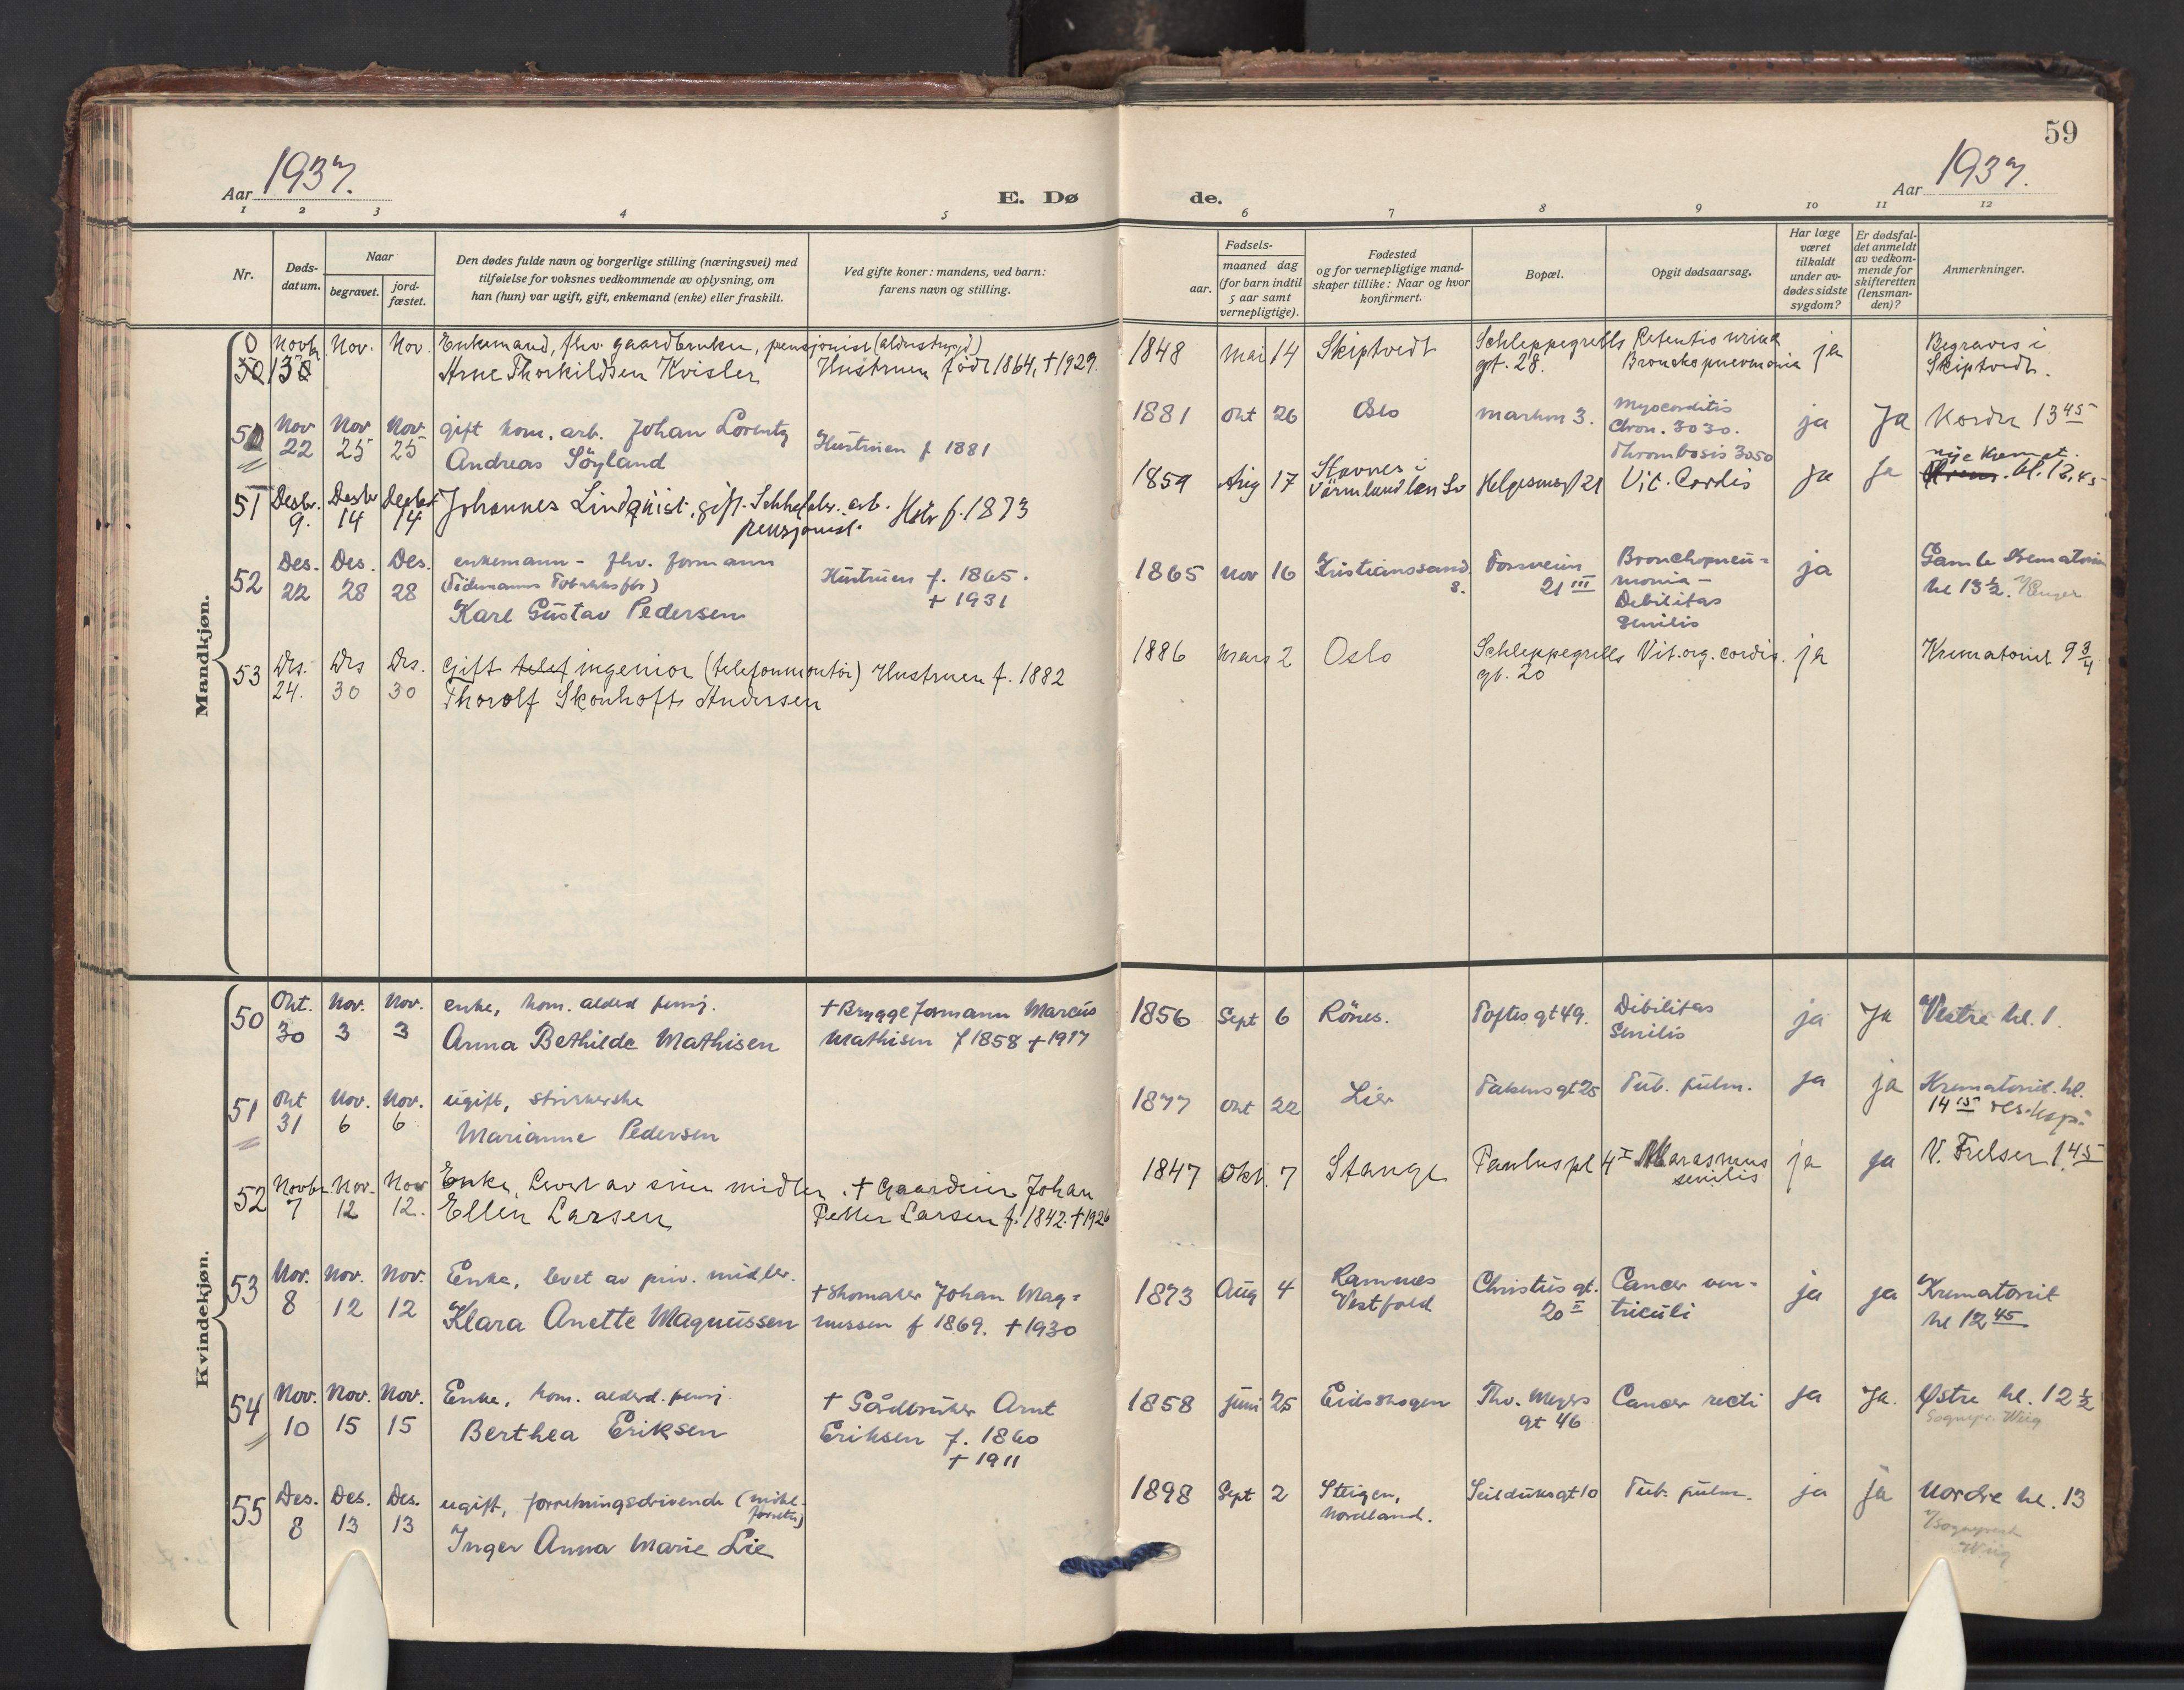 59
Aar 1937.
E. Dø
de.
Aar 1937.
1 2 3 4 5 6 7 8 9 10 11 12
Nr.
Døds-
datum.
Naar
begravet.
jord-
fæstet.
Den dødes fulde navn og borgerlige stilling (næringsvei) med
tilføielse for voksnes vedkommende av oplysning, om
han (hun) var ugift, gift, enkemand (enke) eller fraskilt.
Ved gifte koner: mandens, ved barn:
farens navn og stilling.
Fødsels-
aar.
maaned dag
(for barn indtil
5 aar samt
vernepligtige).
Fødested
og for vernepligtige mand-
skaper tillike: Naar og hvor
konfirmert.
Bopæl.
Opgit dødsaarsag.
Har læge
været
tilkaldt
under av-
dødes sidste
sygdom?
Er dødsfal-
det anmeldt
av vedkom-
mende for
skifteretten
(lensman-
den)?
Anmerkninger.
Mandkjøn.
0 Novbr. Nov. Nov. Enkemand, fhv. gaardbruker, pensjonist (alderstrygd) 1848 mai 14 Skiptvedt Schleppegrells Retentio urinae ja Begraves i
13 Arne Thorkildsen Kvisler Hustruen født 1864, † 1929. gt. 28. Bronchopneumonia Skiptvedt.
50 Nov Nov Nov gift kom. arb. Johan Lorentz Hustruen f 1881 1881 okt 26 Oslo Myocorditis ja Ja Nordre 13 45
22 25 25 Andreas Söyland chron. 3030.
Thrombosis 3050
51 Desbr. Desbr Desbr Johannes Lindqvist, gift. arb. Hstr f. 1873 1859 Aug 17 Stavnes i Helgesensgt 21 Vit. Cordis ja ja nye Kremat.
9. 14 14 pensjonist. Värmland len Sv kl. 12,45
52 Des. Des. Des. enkemann - fhv. formann Hustruen f. 1865. 1865 nov 16 Kristianssand Bronchopneu= ja Gamle Krematorium
22 28 28 (Tidemanns Tobakksfbr) † 1931 s. 21 III monia - kl 13 ½.
Karl Gustav Pedersen Debilitas
senilis
53 Des. Des Des. Gift telef ingeniør (telefonmontør) Hustruen f. 1882 1886 mars 2 Oslo Schleppegrells Vit. org. cordis. ja Krematoriet 9 ¾
24. 30 30 Thorolf Skonhoft Andersen gt. 20
Kvindekjøn.
50 Okt. Nov. Nov. enke, kom. alderd pensj. † Bryggeformann Marcus 1856 Sept 6 Rönes. Toftes gt 49. Dibilitas ja Ja Vestre kl. 1.
30 3 3 Anna Bethilde Mathisen Mathisen f 1858 † 1917 Senilis
51 Okt Nov. Nov. ugift, strikkerske 1877 Okt 22 Lier Falsensgt 25 Tub. pulm. ja ja Krematoriet kl.
31 6 6 Marianne Pedersen 14 15
52 Novbr. Nov. Nov Enke, Levet av sine midler. † Gaardeier Johan 1847 Okt. 7 Stange Pauluspl 4 I Marasmus ja ja V. Frelser 1.45
7 12 12. Ellen Larsen Petter Larsen f. 1842. † 1926 senilis
53 Nov. Nov. Nov. Enke, levet av priv. midler. † Skomaker Johan Mag= 1873 Aug 4 Ramnes Christiesgt. Cancer ven= ja ja Krematoriet
8 12 12 Klara Anette Magnussen nussen f 1869. † 1930 Vestfold 20 II triculi kl 12 45
54 Nov. Nov. Nov. Enke, kom. alderd. pensj. † Gårdbruker Arnt 1858 juni 25 Eidskogen Thv. Meyers Cancer recti ja Ja. Østre kl. 12 ½
10 15 15 Berthea Eriksen Eriksen f. 1860 gt 46 Sognepr. Wiig
† 1911
55 Des. Des. Des. ugift, forretningsdrivende 1898 Sept 2 Steigen, Seilduksgt 10 Tub. pulm. ja ja Nordre kl. 13
8 13 13 Inger Anna Marie Lie Nordland. Sogneprest
Wiig